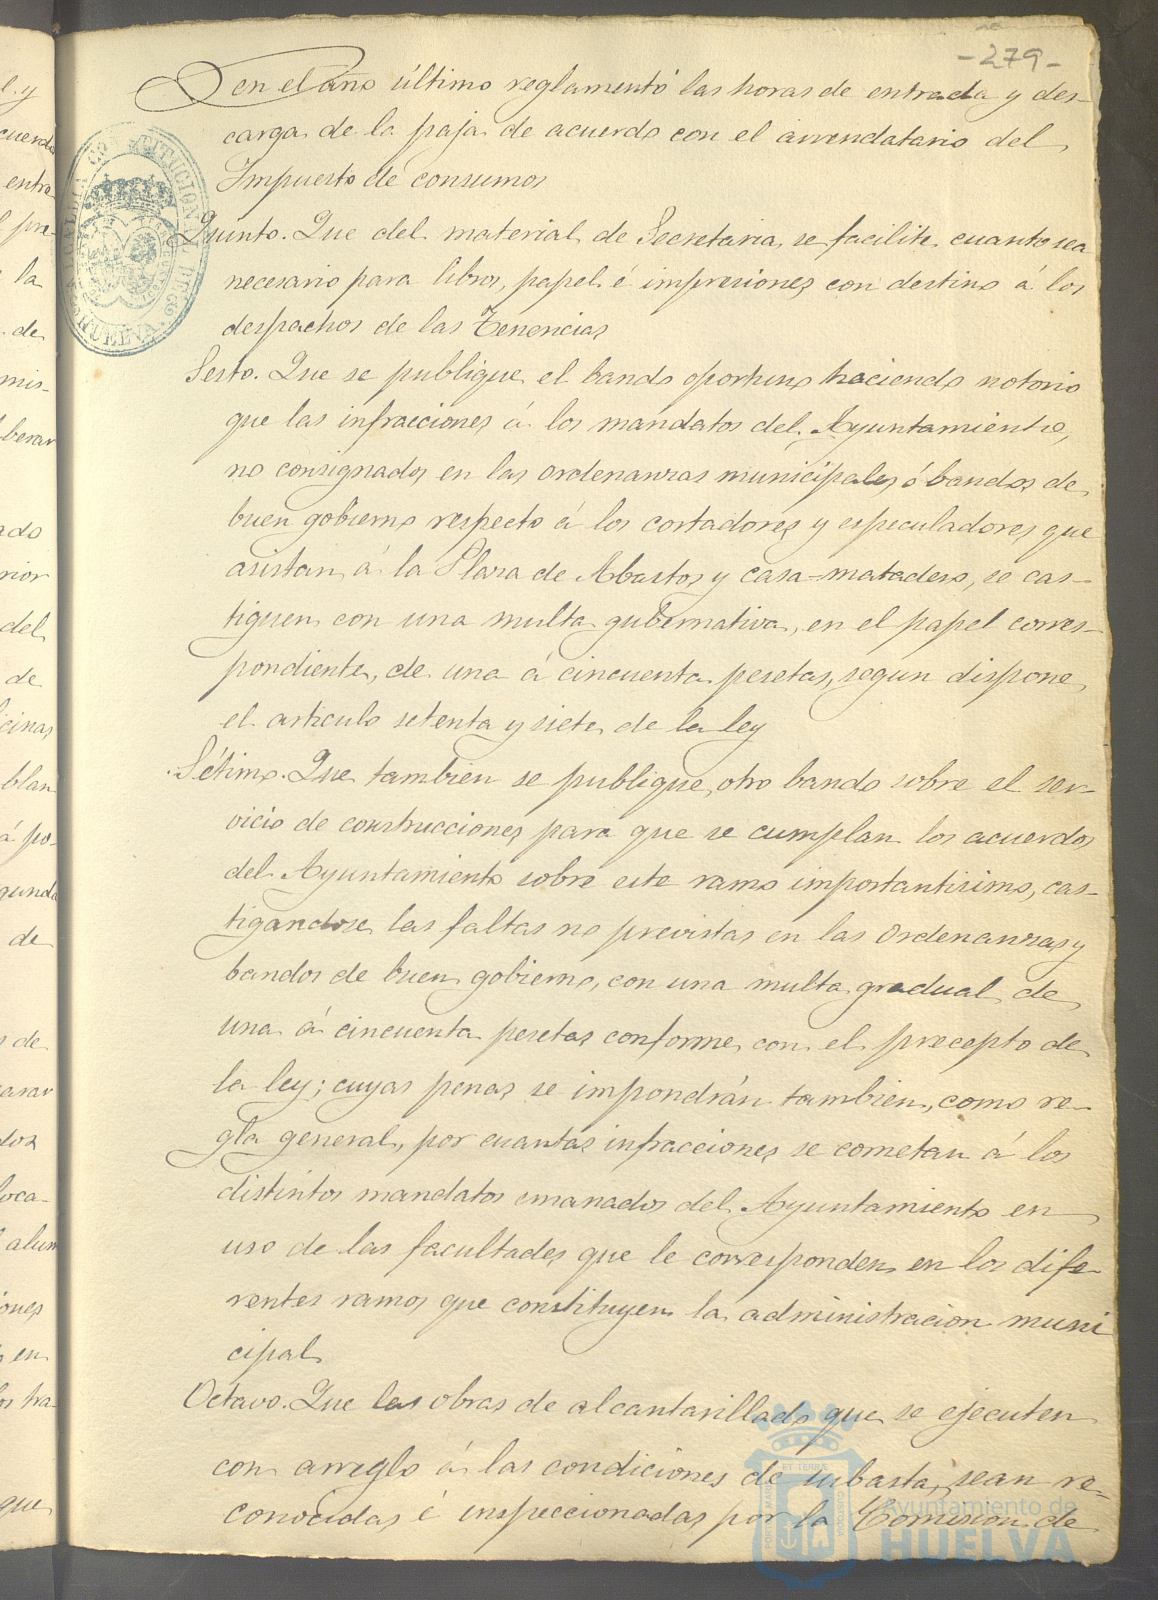 -279-
en el año último reglamentó las horas de entrada y des-
carga de la paja de acuerdo con el arrendatario del
Impuesto de consumos
Quinto. Que del material de Secretaria se facilite cuanto sea
necesario para libros, papel é impresiones con destino á los
despachos de las Tenencias
Sesto. Que se publique el bando oportuno haciendo notorio
que las infracciones á los mandatos del Ayuntamiento,
no consignados en las ordenanzas municipales ó bandos de
buen gobierno respecto á los cortadores y especuladores que
asistan á la Plaza de Abastos y casa-matadero, se cas-
tiguen con una multa gubernativa, en el papel corres-
pondiente, de una á cincuenta pesetas, segun dispone
el articulo setenta y siete de la ley
Sétimo. Que tambien se publique otro bando sobre el ser-
vicio de construcciones para que se cumplan los acuerdos
del Ayuntamiento sobre este ramo importantisimo, cas-
tigandose las faltas no previstas en las ordenanzas y
bandos de buen gobierno, con una multa gradual de
una á cincuenta pesetas conforme con el precepto de
la ley; cuyas penas se impondrán tambien, como re-
gla general, por cuantas infracciones se cometan á los
distintos mandatos emanados del Ayuntamiento en
uso de las facultades que le corresponden en los dife-
rentes ramos que constituyen la administracion muni
cipal
Octavo. Que las obras de alcantarillado que se ejecuten
con arreglo á las condiciones de subasta, sean re-
conocidas é inspeccionadas por la Comision de
Ayuntamiento de
HUELVA